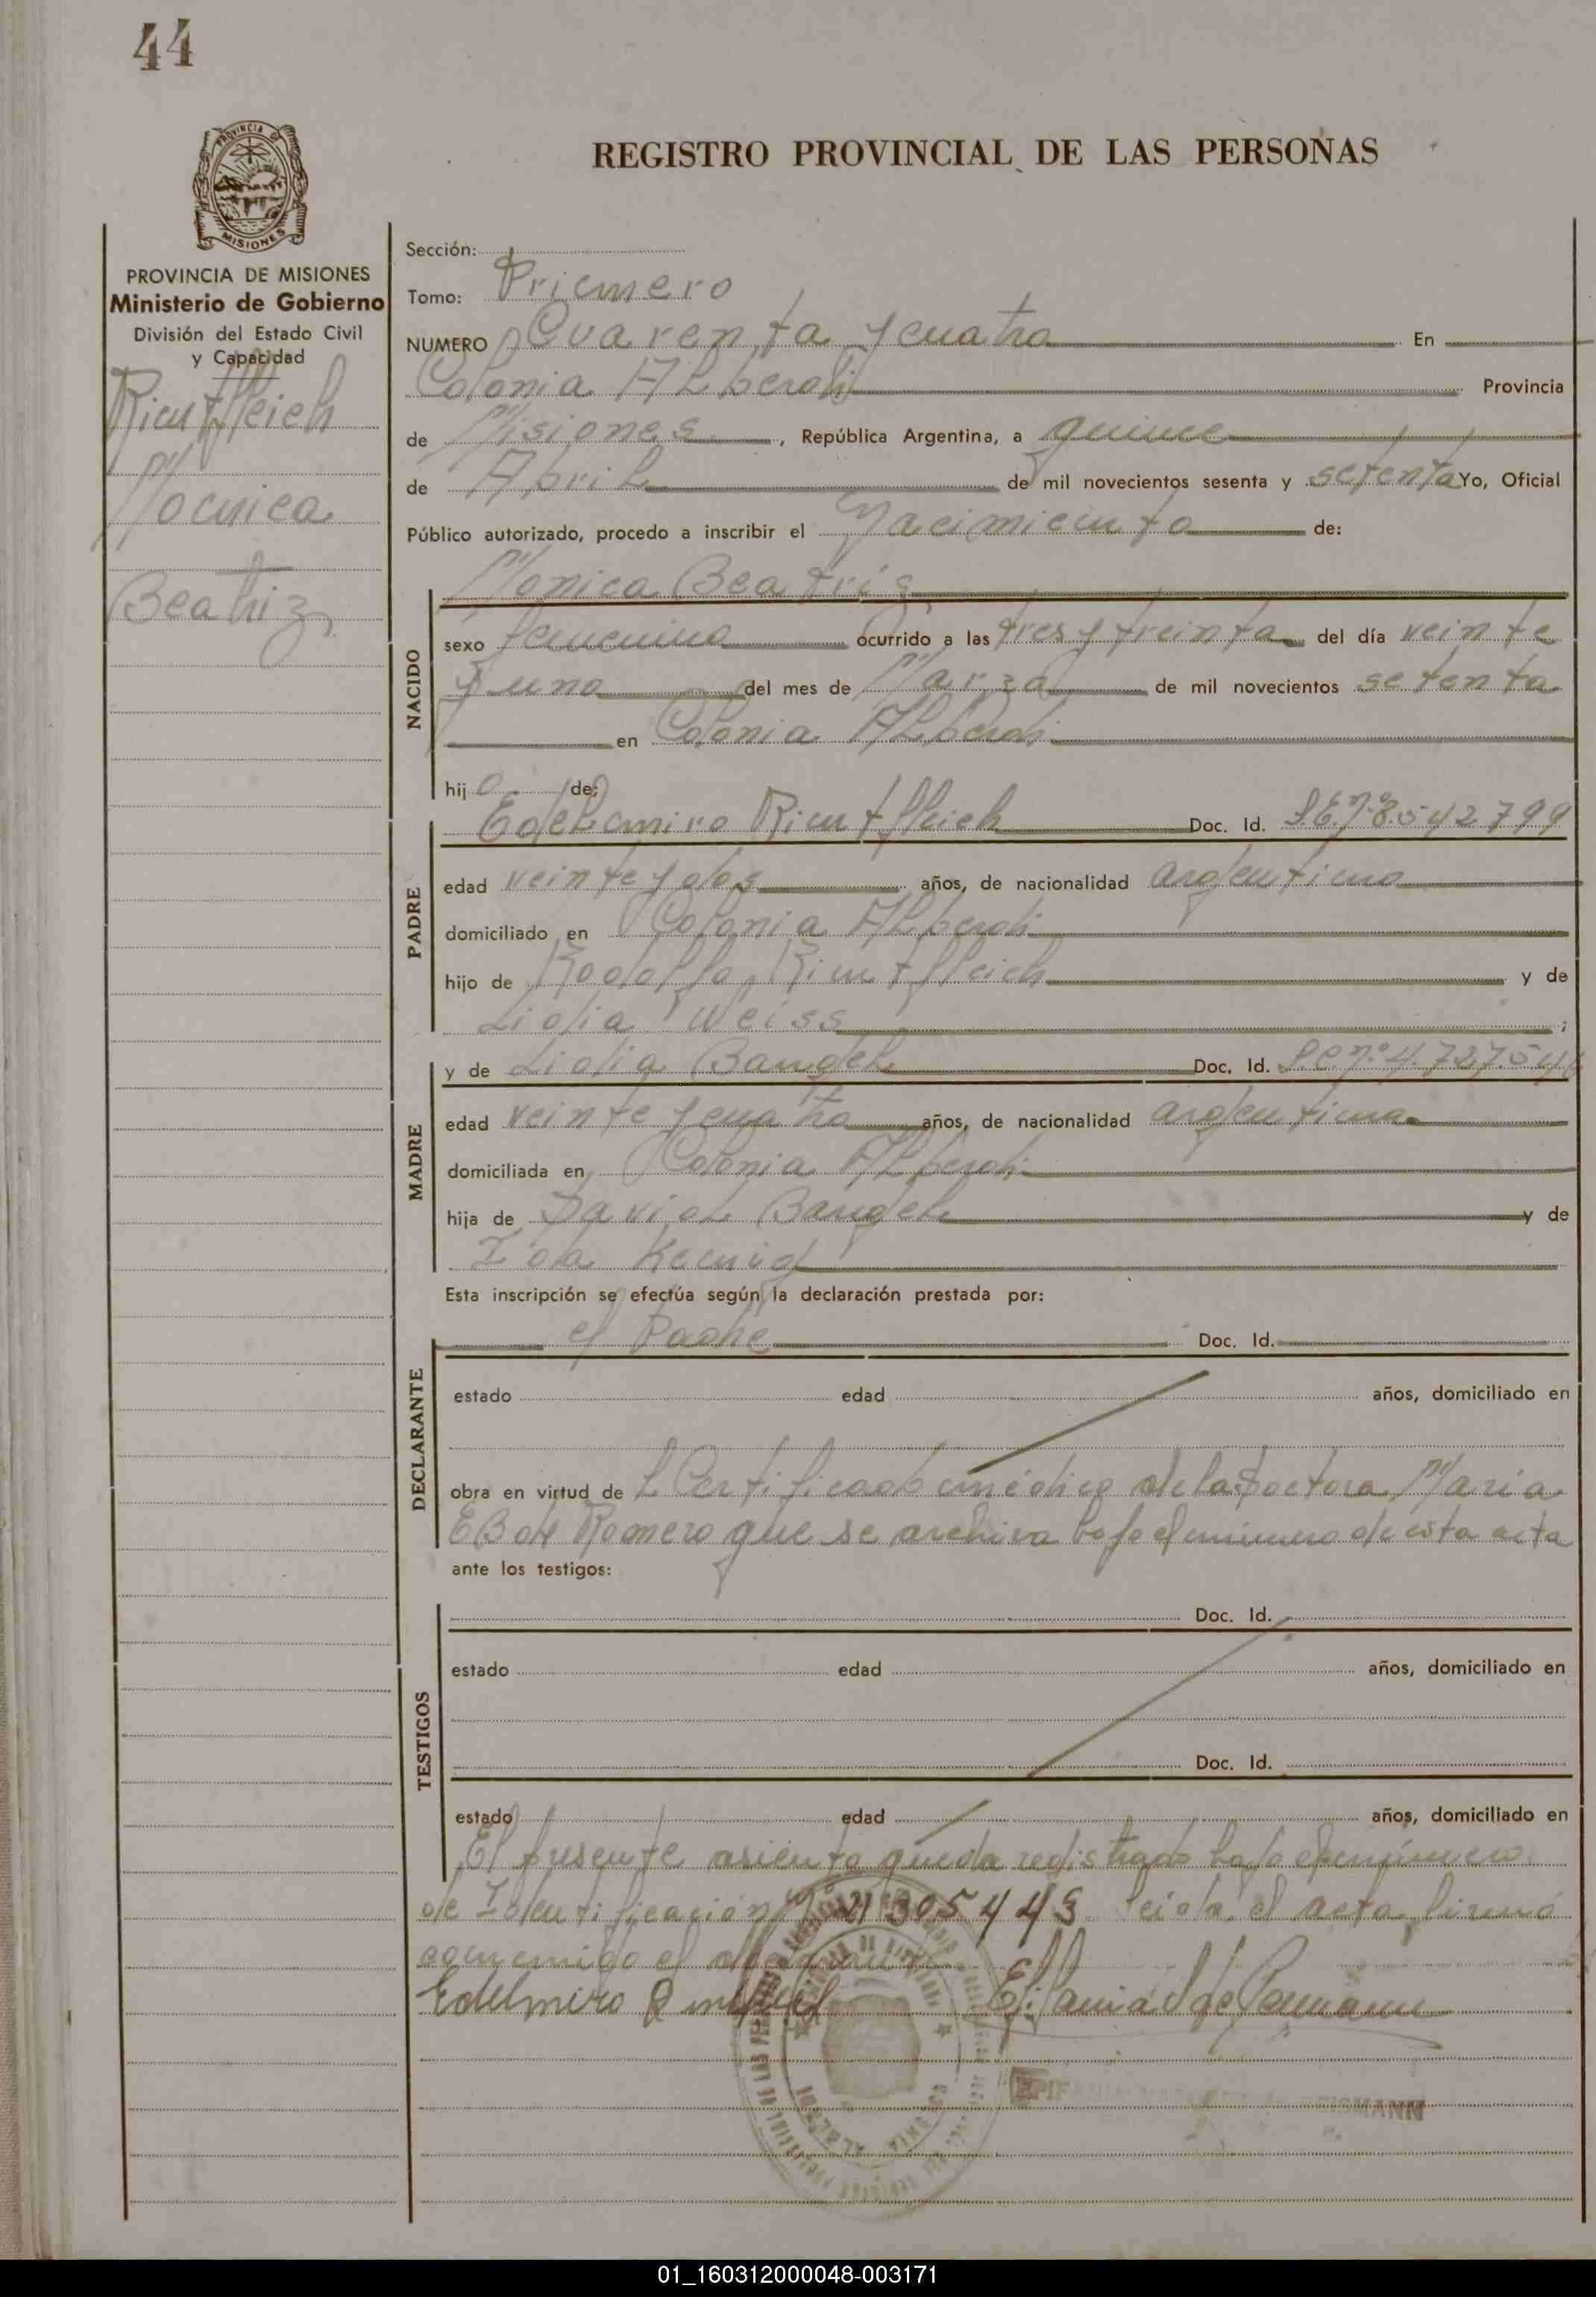 44
PROVINCIA DE
MISIONES
REGISTRO PROVINCIAL DE LAS PERSONAS
PROVINCIA DE MISIONES
Ministerio de Gobierno
División del Estado Civil
y Capacidad
Rintfleich
Monica
Beatriz
Sección:
Tomo: Primero
NUMERO Cuarenta y cuatro En
Colonia Alberdi Provincia
de Misiones, República Argentina, a quince
de Abril de mil novecientos sesenta y setenta Yo, Oficial
Público autorizado, procedo a inscribir el Nacimiento de:
NACIDO
Monica Beatris
sexo femenino ocurrido a las tres y treinta del día veinte
y uno del mes de Marzo de mil novecientos setenta
en Colonia Alberdi
hij a de:
PADRE
Edelmiro Rintfleich Doc. Id. L.E. nº 8.542799
edad veinte y dos años, de nacionalidad argentino
domiciliado en Colonia Alberdi
hijo de Rodolfo Rintfleich y de
Lidia Weiss ;
MADRE
y de Lidia Bangel Doc. Id. L.C. nº 4.727.546
edad veinte y cuatro años, de nacionalidad argentina
domiciliada en Colonia Alberdi
hija de David Bangel y de
Ida Kenig
Esta inscripción se efectúa según la declaración prestada por:
DECLARANTE
el Padre Doc. Id.
estado edad años, domiciliado en
obra en virtud de l Certificado médico de la Doctora Maria
E B de Romero que se archiva bajo el numero de esta acta
ante los testigos:
TESTIGOS
Doc. Id.
estado edad años, domiciliado en
Doc. Id.
estado edad años, domiciliado en
El presente asiento queda registrado bajo el número
de Identificación Nº 21305443 leida el acta firmó
conmigo el
Edelmiro R
EPIFANIA REISMANN
01_160312000048-003171